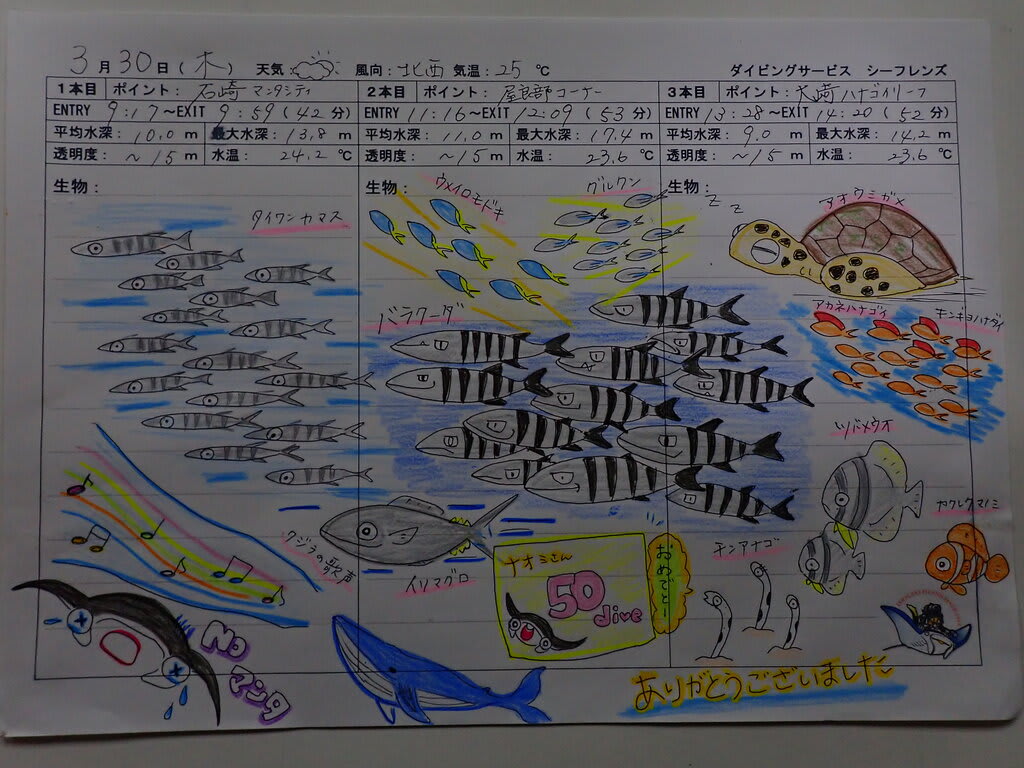 3月30日(木) 天気 風向:北西 気温:25℃ ダイビングサービス シーフレンズ
1本目 ポイント: 石崎マンタシティ
ENTRY 9:17~EXIT 9:59(42分)
平均水深: 10.0 m 最大水深: 13.8 m
透明度: ~15 m 水温: 24.2 ℃
生物:
タイワンカマス
クジラの歌声
NO
マンタ
2本目 ポイント: 屋良部コーナー
ENTRY 11:16~EXIT 12:09(53分)
平均水深: 11.0 m 最大水深: 17.4 m
透明度: ~15 m 水温: 23.6 ℃
生物:
ウメイロモドキ
グルクン
バラクーダ
イソマグロ
ナオミさん
50
dive
おめでとー
3本目 ポイント: 大崎ハナゴイリーフ
ENTRY 13:28~EXIT 14:20(52分)
平均水深: 9.0 m 最大水深: 14.2 m
透明度: ~15 m 水温: 23.6 ℃
生物:
z z
アオウミガメ
アカネハナゴイ
キンギョハナダイ
ツバメウオ
カクレクマノミ
チンアナゴ
ありがとうございました